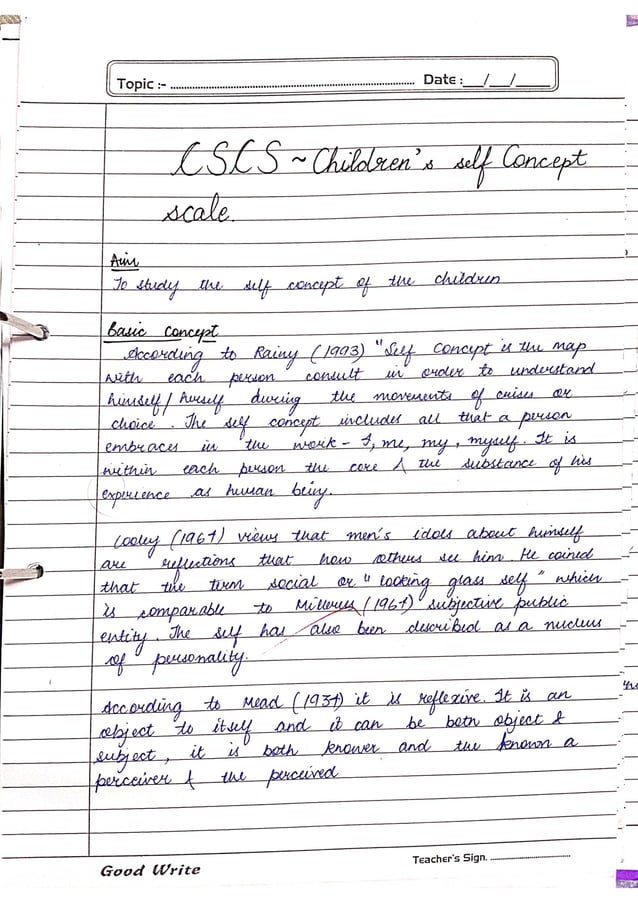 Topic :- ........ Date : __/__/____
CSCS ~ Children's self Concept
scale.
Aim
To study the self concept of the children
Basic Concept
According to Rainy (1993) "Self Concept is the map
with each person consult in order to understand
himself / herself during the movements of crises or
choice. The self concept includes all that a person
embraces in the work - I, me, my, myself. It is
within each person the core & the substance of his
experience as human being.
Cooley (1964) views that men's idols about himself
are reflections that how others see him. He coined
that the term social or "looking glass self" which
is comparable to (1964) subjective public
entity. The self has also been described as a nucleus
of personality.
According to Mead (1934) it is reflexive. It is an
object to itself and it can be both object &
subject, it is both knower and the known a
perceiver & the perceived
Teacher's Sign. ........
Good Write